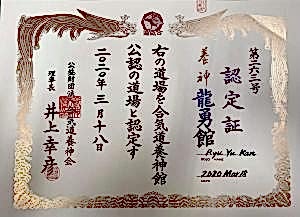 第二六二号
認定証
養神
龍勇館
Ryu Yu Kan
右の道場を合気道養神館
公認の道場と認定す
2020 Mar 18
二〇二〇年三月十八日
公益財団法人
気道養神会
理事長
井上幸彦